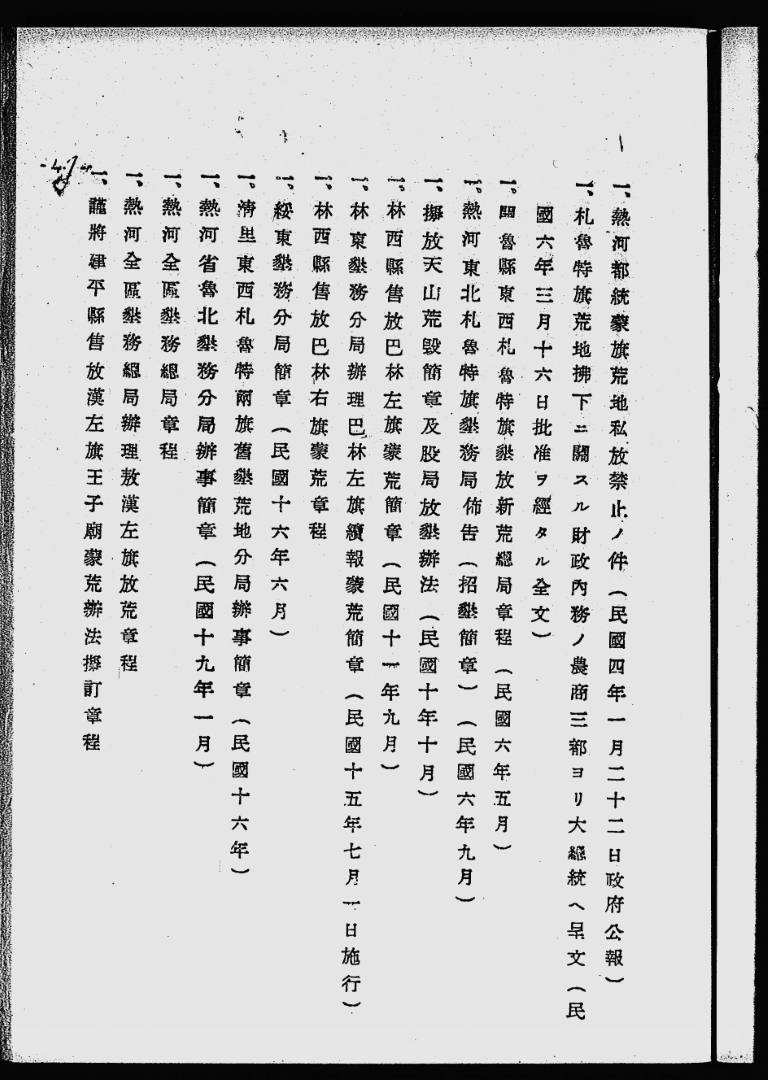 一、熱河都統蒙旗荒地私放禁止ノ件（民國四年一月二十二日政府公報）
一、札魯特旗荒地拂下ニ關スル財政內務ノ農商三部ヨリ大總統ヘ呈文（民
國六年三月十六日批准ヲ經タル全文）
一、開魯縣東西札魯特旗墾放新荒總局章程（民國六年五月）
一、熱河東北札魯特旗墾務局佈告（招墾簡章）（民國六年九月）
一、擬放天山荒毀簡章及股局放墾辦法（民國十年十月）
一、林西縣售放巴林左旗蒙荒簡章（民國十一年九月）
一、林東墾務分局辦理巴林左旗續報蒙荒簡章（民國十五年七月一日施行）
一、林西縣售放巴林右旗蒙荒章程
一、綏東墾務分局簡章（民國十六年六月）
一、清里東西札魯特兩旗舊墾荒地分局辦事簡章（民國十六年）
一、熱河省魯北墾務分局辦事簡章（民國十九年一月）
一、熱河全區墾務總局章程
一、熱河全區墾務總局辦理敖漢左旗放荒章程
一、謹將建平縣售放漢左旗王子廟蒙荒辦法擬訂章程